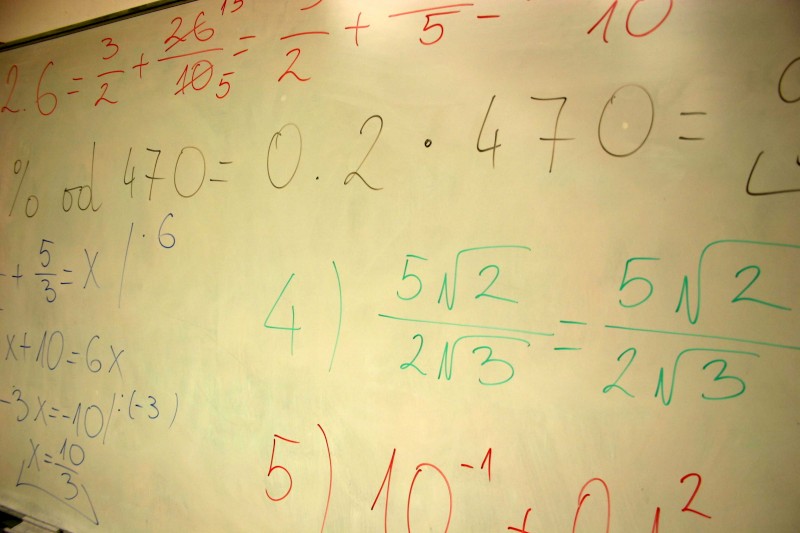 2.6 = 3/2 + 26/10 13 5 = /2 + /5 - 10
% od 470 = 0.2 · 470 =
+ 5/3 = x / · 6
x + 10 = 6x
-3x = -10 / : (-3)
x = 10/3
4) 5√2/2√3 = 5√2/2√3
5) 10⁻¹ + 0 2